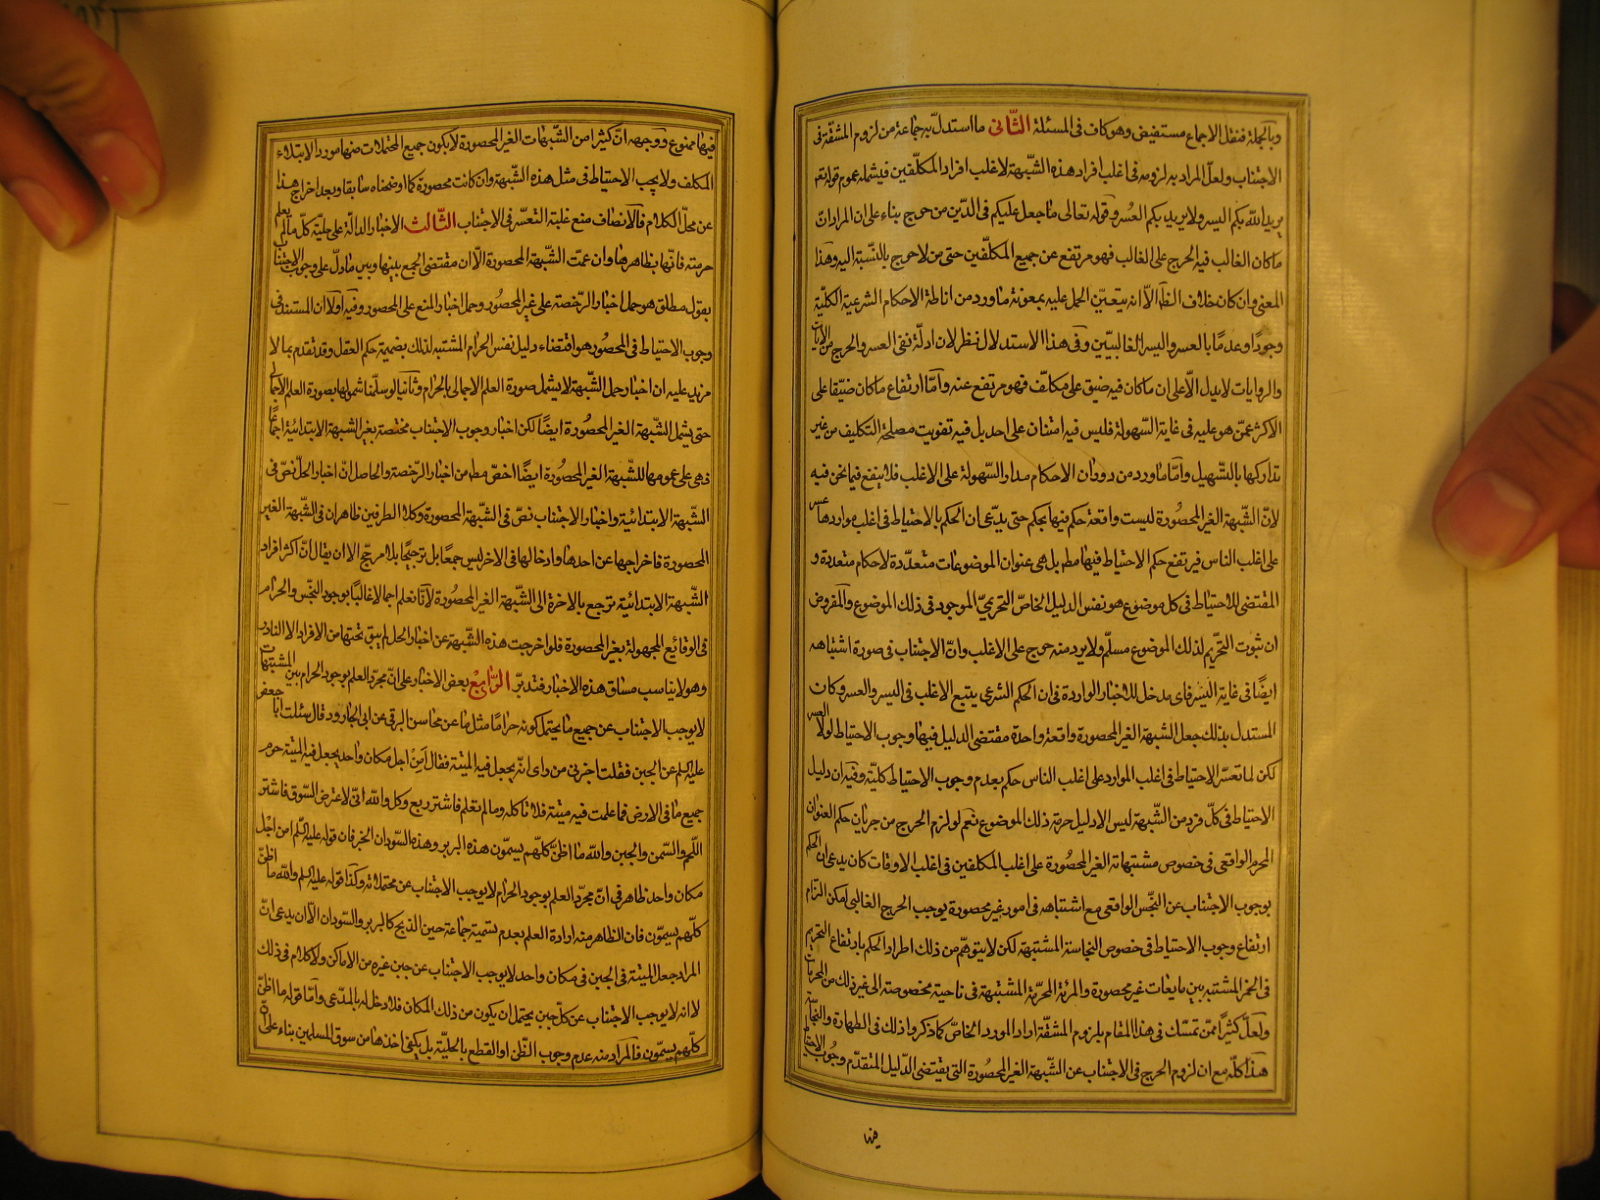 وبالجملة فنقل الاجماع مستفيض وهو كاف فى المسئلة الثانى ما استدل به جماعة من لزوم المشقة فى
الاجتناب ولعل المراد به لزومه فى اغلب افراد هذه الشبهة لاغلب افراد المكلفين فيشمله عموم قوله تعم
يريد الله بكم اليسر ولا يريد بكم العسر وقوله تعالى ما جعل عليكم فى الدين من حرج بناء على ان المراد ان
ما كان الغالب فيه الحرج على الغالب فهو مرتفع عن جميع المكلفين حتى من لا حرج بالنسبة اليه وهذا
المعنى وان كان خلاف الظ الا انه يتعين الحمل عليه بمعونة ما ورد من اناطة الاحكام الشرعية الكلية
وجودا وعدما بالعسر واليسر الغالبيين وفى هذا الاستدلال نظر لان ادلة نفى العسر والحرج من الايات
والروايات لا يدل الا على ان ما كان فيه ضيق على مكلف فهو مرتفع عنه واما ارتفاع ما كان ضيقا على
الاكثر عمن هو عليه فى غاية السهولة فليس فيه امتنان على احد بل فيه تفويت مصلحة التكليف من غير
تداركها بالتسهيل واما ما ورد من دوران الاحكام مدار السهولة على الاغلب فلا ينفع فيما نحن فيه
لان الشبهة الغير المحصورة ليست واقعة حكم فيها بحكم حتى يدعى ان الحكم بالاحتياط فى اغلب مواردها عسر
على اغلب الناس فيرتفع حكم الاحتياط فيها مطم بل هى عنوان لموضوعات متعددة لاحكام متعددة و
المقتضى للاحتياط فى كل موضوع هو نفس الدليل الخاص التحريمى الموجود فى ذلك الموضوع والمفروض
ان ثبوت التحريم لذلك الموضوع مسلم ولا يرد منه حرج على الاغلب وان الاجتناب فى صورة اشتباهه
ايضا فى غاية اليسر فاى مدخل للاخبار الواردة فى ان الحكم الشرعى يتبع الاغلب فى اليسر والعسر وكان
المستدل بذلك جعل الشبهة الغير المحصورة واقعة واحدة مقتضى الدليل فيها وجوب الاحتياط لولا العسر
لكن لما تعسر الاحتياط فى اغلب الموارد على اغلب الناس حكم بعدم وجوب الاحتياط كلية وفيه ان دليل
الاحتياط فى كل فرد من الشبهة ليس الا دليل حرمة ذلك الموضوع نعم لو لزم الحرج من جريان حكم العنوان
المحرم الواقعى فى خصوص مشتبهاته الغير المحصورة على اغلب المكلفين فى اغلب الاوقات كان يدعى ان الحكم
بوجوب الاجتناب عن النجس الواقعى مع اشتباهه فى امور غير محصورة يوجب الحرج الغالبى امكن التزام
ارتفاع وجوب الاحتياط فى خصوص النجاسة المشتبهة لكن لا يتوهم من ذلك اطراد الحكم بارتفاع التحريم
فى الخمر المشتبه بين مايعات غير محصورة والمرئة المحرمة المشتبهة فى ناحية مخصوصة الى غير ذلك من المحرمات
ولعل كثيرا ممن تمسك فى هذا المقام بلزوم المشقة اراد المورد الخاص كما ذكروا ذلك فى الطهارة والنجاسة
هذا كله مع ان لزوم الحرج فى الاجتناب عن الشبهة الغير المحصورة التى يقتضى الدليل المتقدم وجوب الاحتياط
فيها
فيها ممنوع ووجهه ان كثيرا من الشبهات الغير المحصورة لا يكون جميع المحتملات منها مورد الابتلاء
المكلف ولا يجب الاحتياط فى مثل هذه الشبهة وان كانت محصورة كما اوضحناه سابقا وبعد اخراج هذا
عن محل الكلام فالانصاف منع غلبة التعسر فى الاجتناب الثالث الاخبار الدالة على حلية كل ما لم يعلم
حرمته فانها بظاهرها وان عمت الشبهة المحصورة الا ان مقتضى الجمع بينها وبين ما دل على وجوب الاجتناب
بقول مطلق هو حمل اخبار الرخصة على غير المحصور وحمل اخبار المنع على المحصور وفيه اولا ان المستند فى
وجوب الاحتياط فى المحصور هو اقتضاء دليل نفس الحرام المشتبه لذلك بضميمة حكم العقل وقد تقدم بما لا
مزيد عليه ان اخبار حل الشبهة لا يشمل صورة العلم الاجمالى بالحرام وثانيا لو سلمنا شمولها بصورة العلم الاجمالى
حتى يشمل الشبهة الغير المحصورة ايضا لكن اخبار وجوب الاجتناب مختصة بغير الشبهة الابتدائية اجماعا
فهى على عمومها للشبهة الغير المحصورة ايضا اخص مطم من اخبار الرخصة والحاصل ان اخبار الحل نص فى
الشبهة الابتدائية واخبار الاجتناب نص فى الشبهة المحصورة وكلا الطرفين ظاهران فى الشبهة الغير
المحصورة فاخراجها عن احدهما وادخالها فى الاخر ليس جمعا بل ترجيحا بلا مرجح الا ان يقال ان اكثر افراد
الشبهة الابتدائية ترجع بالاخرة الى الشبهة الغير المحصورة لانا نعلم اجمالا غالبا بوجود النجس والحرام
فى الوقائع المجهولة بغير المحصورة فلو اخرجت هذه الشبهة عن اخبار الحل لم يبق تحتها من الافراد الا النادر
وهو لا يناسب مساق هذه الاخبار فتدبر الرابع بعض الاخبار على ان مجرد العلم بوجود الحرام بين المشتبهات
لا يوجب الاجتناب عن جميع ما يحتمل كونه حراما مثل ما عن محاسن البرقى عن ابى الجارود قال سئلت ابا جعفر
عليه السلم عن الجبن فقلت اخبرنى من راى انه يجعل فيه الميتة فقال امن اجل مكان واحد يجعل فيه الميتة حرم
جميع ما فى الارض فما علمت فيه ميتة فلا تاكله وما لم تعلم فاشتر وبع وكل والله انى لاعترض السوق فاشتر
اللحم والسمن والجبن والله ما اظن كلهم يسمون هذه البربر وهذه السودان الخبر فان قوله عليه السلم امن اجل
مكان واحد ظاهر فى ان مجرد العلم بوجود الحرام لا يوجب الاجتناب عن محتملاته وكذا قوله عليه السلم والله ما اظن
كلهم يسمون فان الظاهر منه ارادة العلم بعدم تسمية جماعة حين الذبح كالبربر والسودان الا ان يدعى ان
المراد جعل الميتة فى الجبن فى مكان واحد لا يوجب الاجتناب عن جبن غيره من الاماكن ولا كلام فى ذلك
لا انه لا يوجب الاجتناب عن كل جبن يحتمل ان يكون من ذلك المكان فلا دخل له بالمدعى واما قوله ما اظن
كلهم يسمون فالمراد منه عدم وجوب الظن او القطع بالحلية بل يكفى اخذها من سوق المسلمين بناء على ان